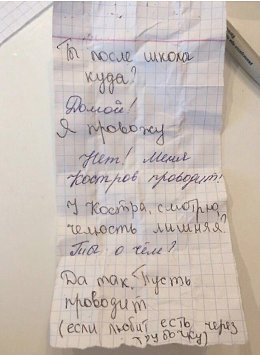 Ты после школа
куда?
Домой!
Я провожу
Нет! Меня
Костров проводит!
У Костра, смотрю,
челюсть лишняя?
Ты о чём?
Да так. Пусть
проводит
(если любит есть через
трубочку)